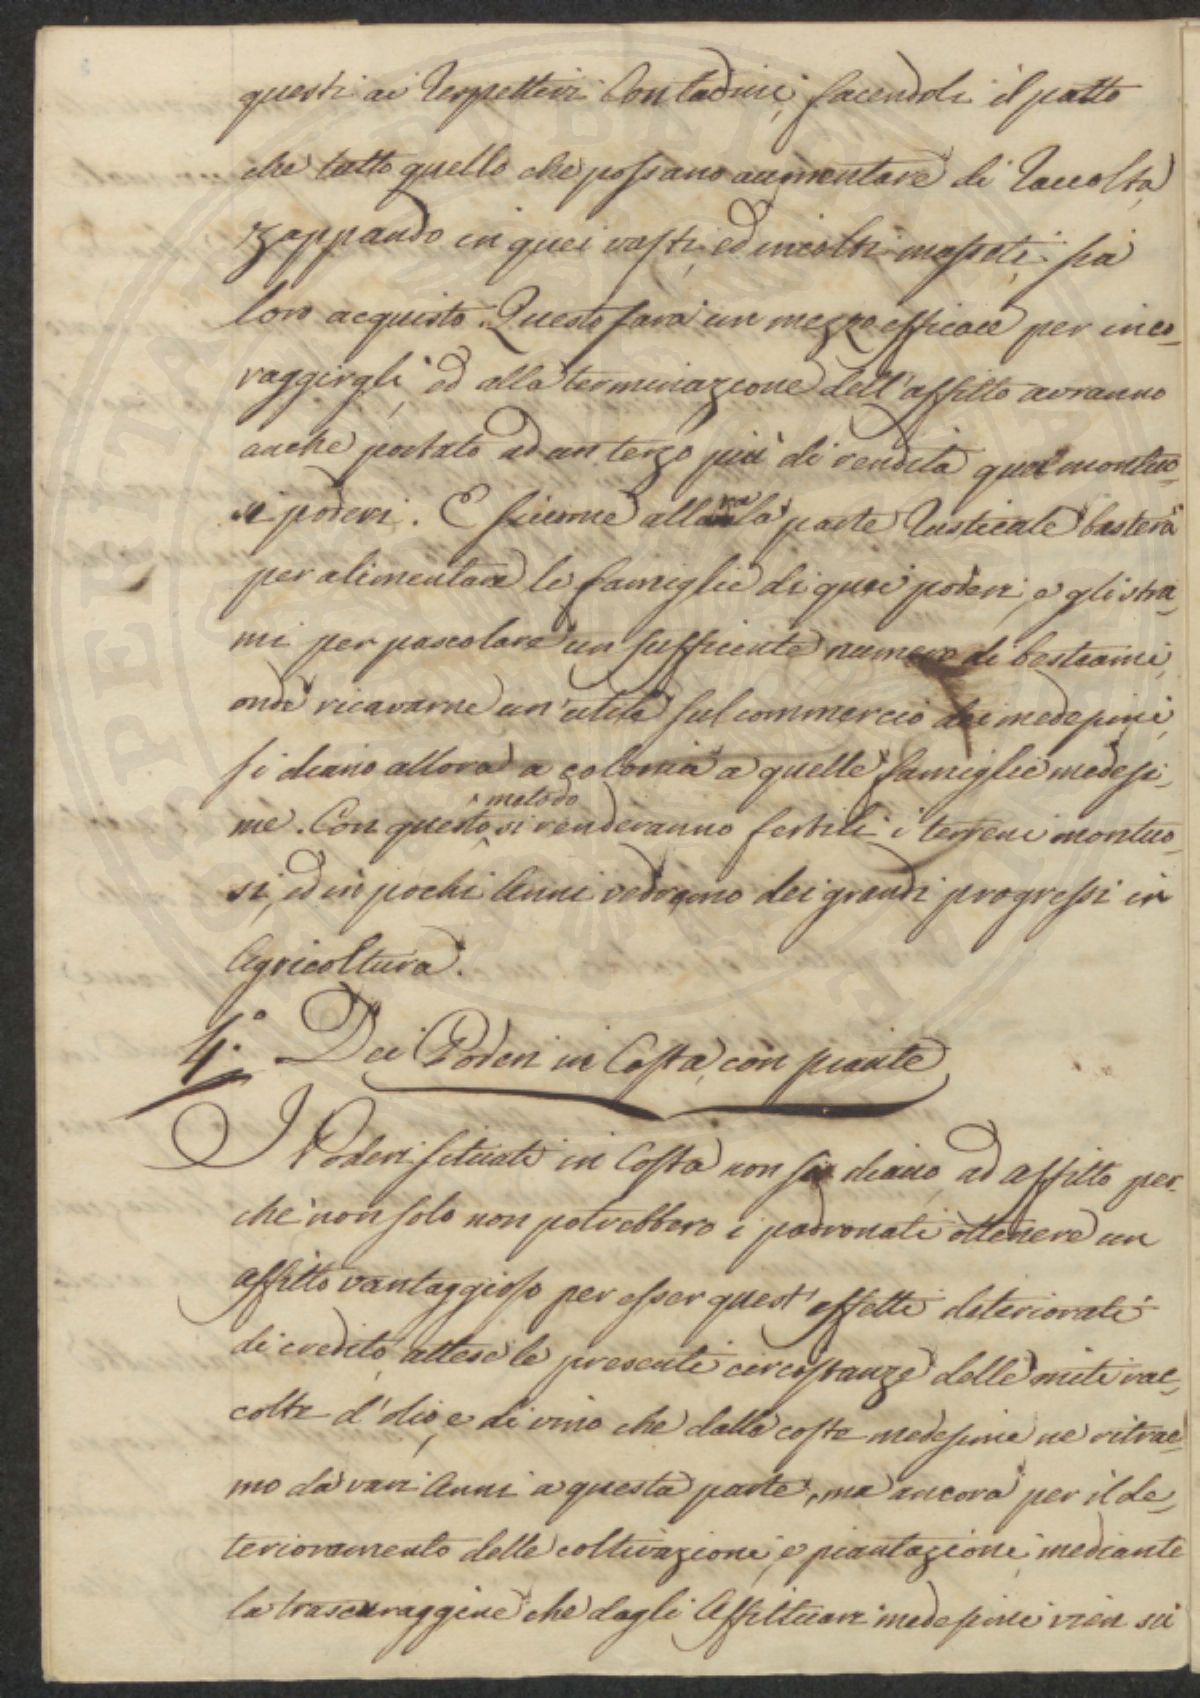 questi ai respettivi Contadini, facendoli il patto
che tutto quello che possano aumentare di raccolta,
zappando in quei vasti, ed incolti masseti, sia
loro acquisto. Questo sarà un mezzo efficace per inco-
raggirgli, ed alla terminazione dell'affitto avranno
anche portato ad un terzo più di rendita quei montuo-
si poderi. E siccome allora la parte rusticale basterà
per alimentare le famiglie di quei poderi, e gli stra-
mi per pascolare un sufficiente numero di bestiami,
onde ricavarne un'utile sul commercio dei medesimi,
si diano allora a colonia a quelle famiglie medesi-
me. Con questo metodo si renderanno fertili i terreni montuo-
si, ed in pochi Anni vedremo dei grandi progressi in
Agricoltura.
4.° Dei Poderi in Costa, con piante
I Poderi situati in Costa non si diano ad affitto per-
chè non solo non potrebbero i padronati ottenere un
affitto vantaggioso per esser quest'effetti deteriorati
di credito, attese le presenti circostanze delle miti rac-
colte d'olio, e di vino che dalle coste medesime ne ritrae-
mo da vari Anni a questa parte, ma ancora per il de-
terioramento delle coltivazioni, e piantazioni mediante
la trascuraggine che dagli Affittuari medesimi vien su